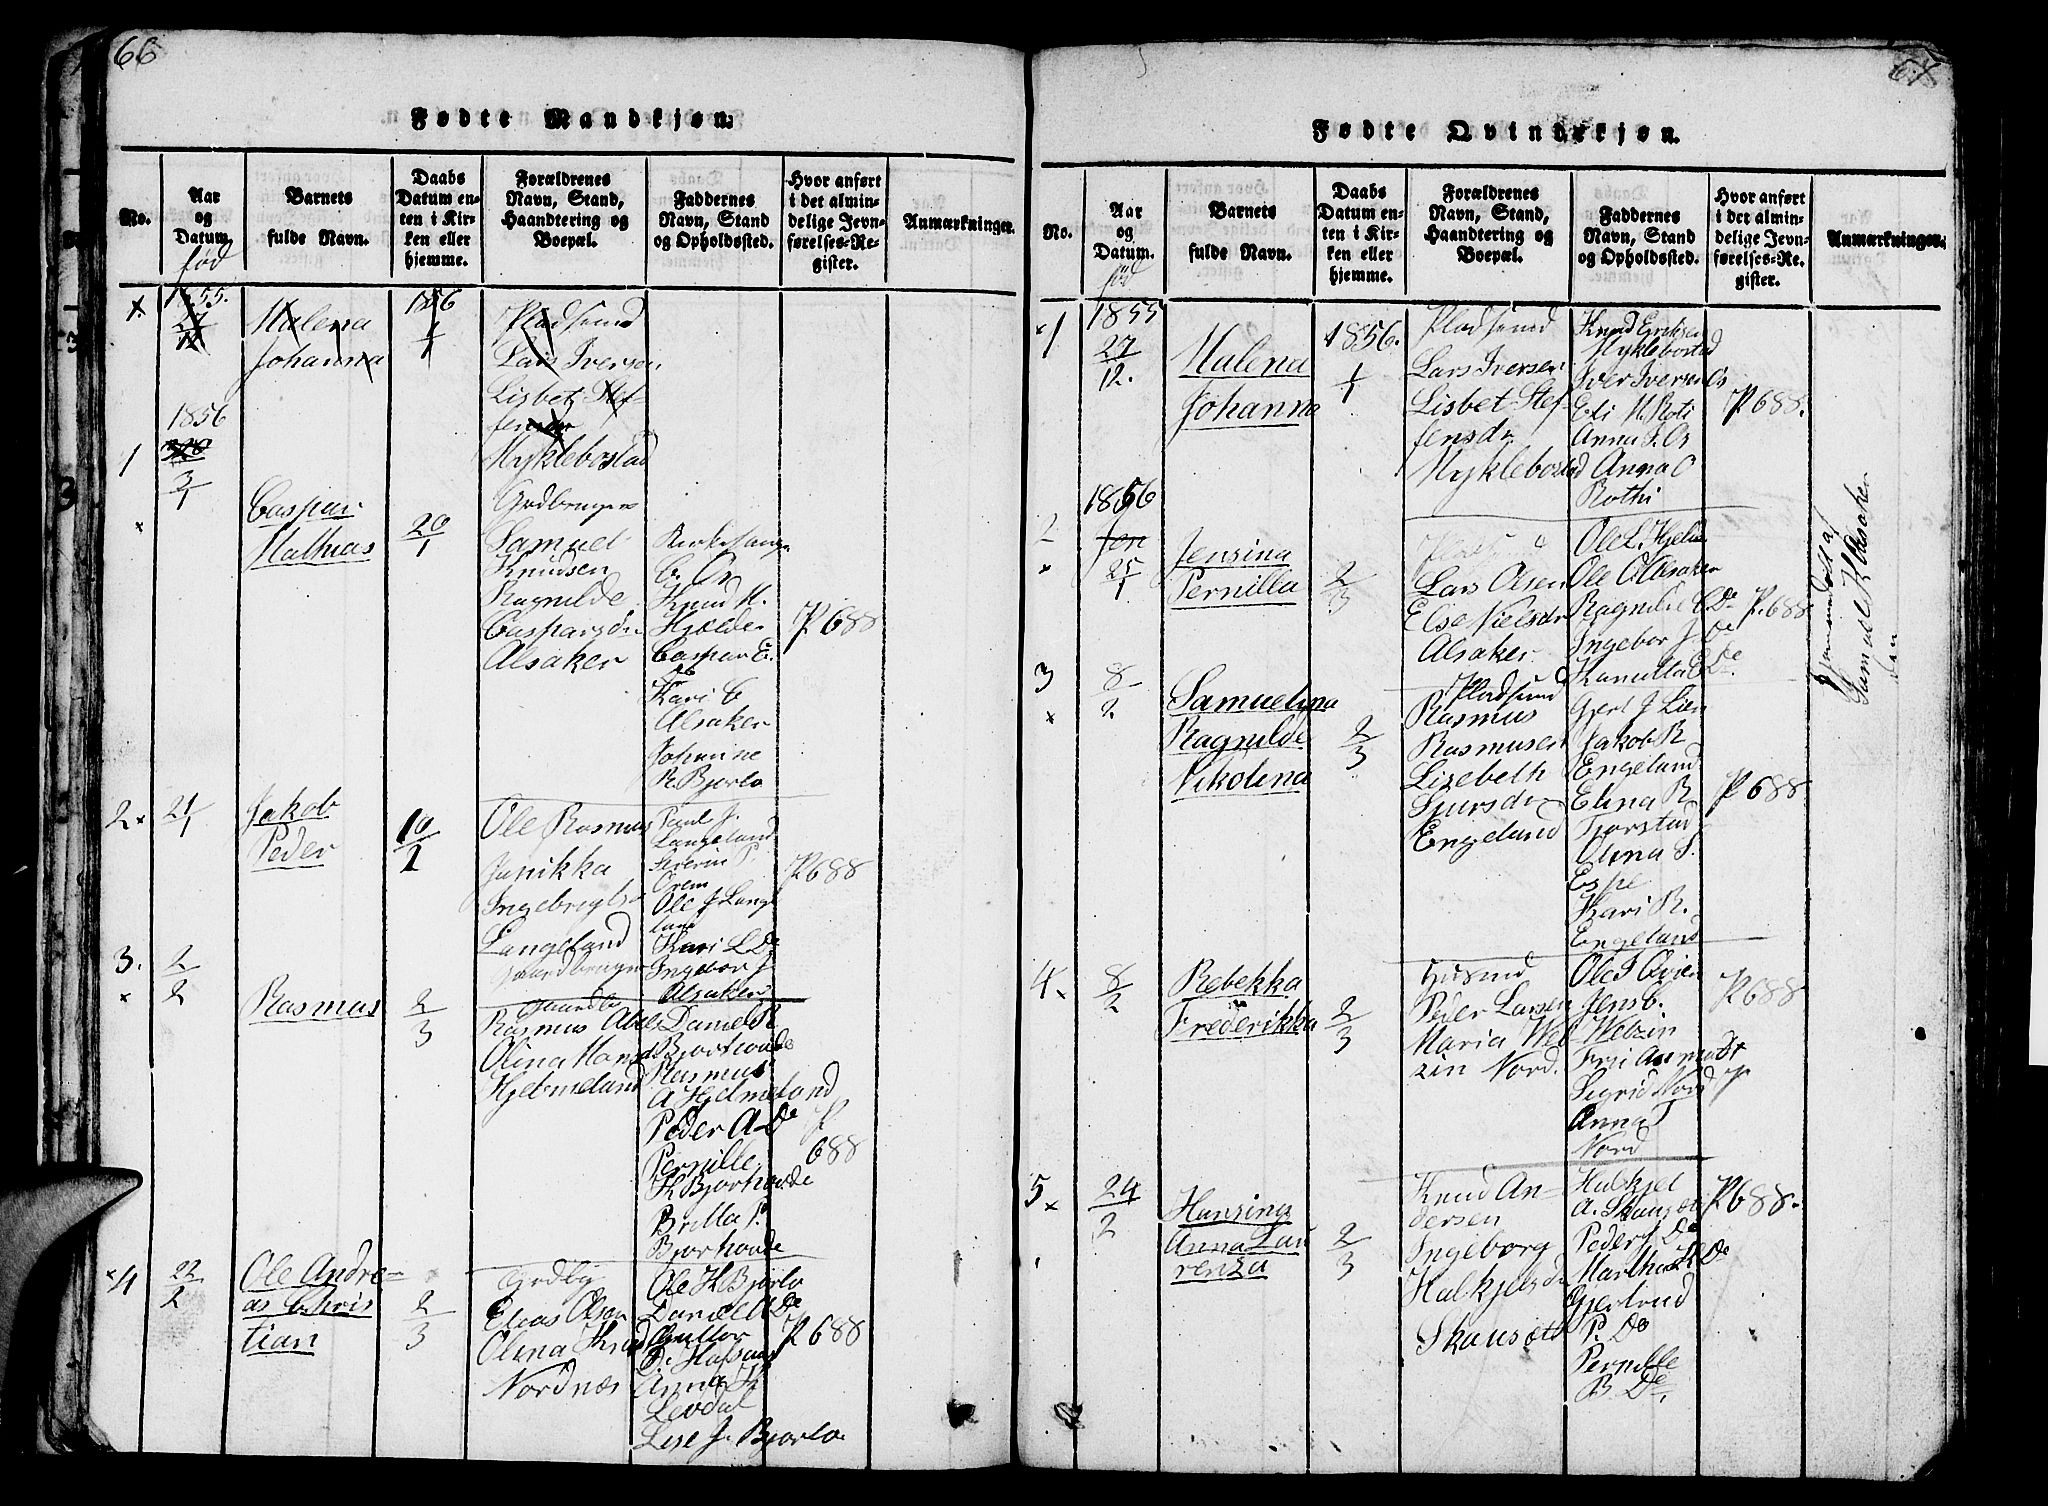 66
Fødte Mandkjøn.
No.
Aar og Datum.
Barnets fulde Navn.
Daabs Datum enten i Kirken eller hjemme.
Forældrenes Navn, Stand, Haandtering og Boepæl.
Faddernes Navn, Stand og Opholdssted.
Hvor anført i det almindelige Jevnførelses-Register.
Anmærkninger.
fød
1.
1855.
27/12
Malena
Johanna
1856
1/1
Pladsmd
Lars Iversen
Lisbet Stef-
fensdr
Myklebostad
1
1856
3/1
Caspar
Mathias
20/1
Grdbruger
Samuel
Knudsen
Ragnilde
Casparsdr
Alsaker
Kirkesanger
C. Os
Knud M.
Hjelde
Caspar E.
Do
Kari C
Alsaker
Johanne
R. Bjorlo
P 688
2
21/1
Jakob
Peder
10/2
Ole Rasmus
Janikka
Ingebrigtsd
Langeland
Gaardbruger
Paul J.
Langeland
Iverin P.
Orem
Ole J Lange
land
Kari L Do
Ingebor J
Alsaker
P 688
3.
2/2
Rasmus
2/3
Gaardbr
Rasmus Abels
Olina Hansd
Hjelmeland
Daniel R
Bjorhovde
Rasmus
A Hjelmeland
Peder A Do
Pernille
K Bjorhovde
Britta P.
Bjorhovde
P
688
4
22/2
Ole Andre-
as Chris
tian
2/3
Grdbr
Elias Olson
Olina Knud
Nordnæs
Ole K Bjorlo
Daniel A Do
Gutlor
D. Hafsaas
Anna K
Levdal
Lise J. Bjorlo
P 688
67
Fødte Qvindekjøn.
No.
Aar og Datum.
Barnets fulde Navn.
Daabs Datum enten i Kirken eller hjemme.
Forældrenes Navn, Stand, Haandtering og Boepæl.
Faddernes Navn, Stand og Opholdssted.
Hvor anført i det almindelige Jevnførelses-Register.
Anmærkninger.
fød
1
1855
27/12.
Malena
Johanna
1856.
1/1
Pladsmd
Lars Iversen
Lisbet Stef
fensdr
Myklebostad
Knud Eriksen
Myklebostad
Iver Iversen Os
Eli M. Roti
Anna I. Os
Anna O
Rothi
P 688.
2
1856
Jen
25/1
Jensina
Pernilla
2/3
Pladsmd
Lars Olsen
Else Nielsdr
Alsaker
Ole L. Hjelm
Ole O Alsaker
Ragnilde C Do
Ingebor J Do
Kanutta E Do.
P. 688
Hjemmedøbt af
Samuel K Alsaker
3
8/2.
Samuelina
Ragnilde
Nikolina
2/3
Pladsmd
Rasmus
Rasmusen
Lisebeth
Sjursdr
Engeland
Gjert J Lien
Jakob R
Engeland
Elina R
Tjorstad
Olina S.
Espe
Kari R.
Engeland
P 688
4
8/2
Rebekka
Frederikka
2/3
Husmd
Peder Larsen
Maria Wel
zin Nord.
Jens C.
Welzin
Sigrid Nord
Anna T
Nord
P 688
5
24/2
Hansina
Anna Lau
renza
2/3
Knud An-
dersen
Ingeborg
Halkjelsd
Skausæt
Halkjel
A. Skausæt
Peder J Do
Martha K Do
Gjertrud
P. Do
Pernille
B. Do.
P 688.